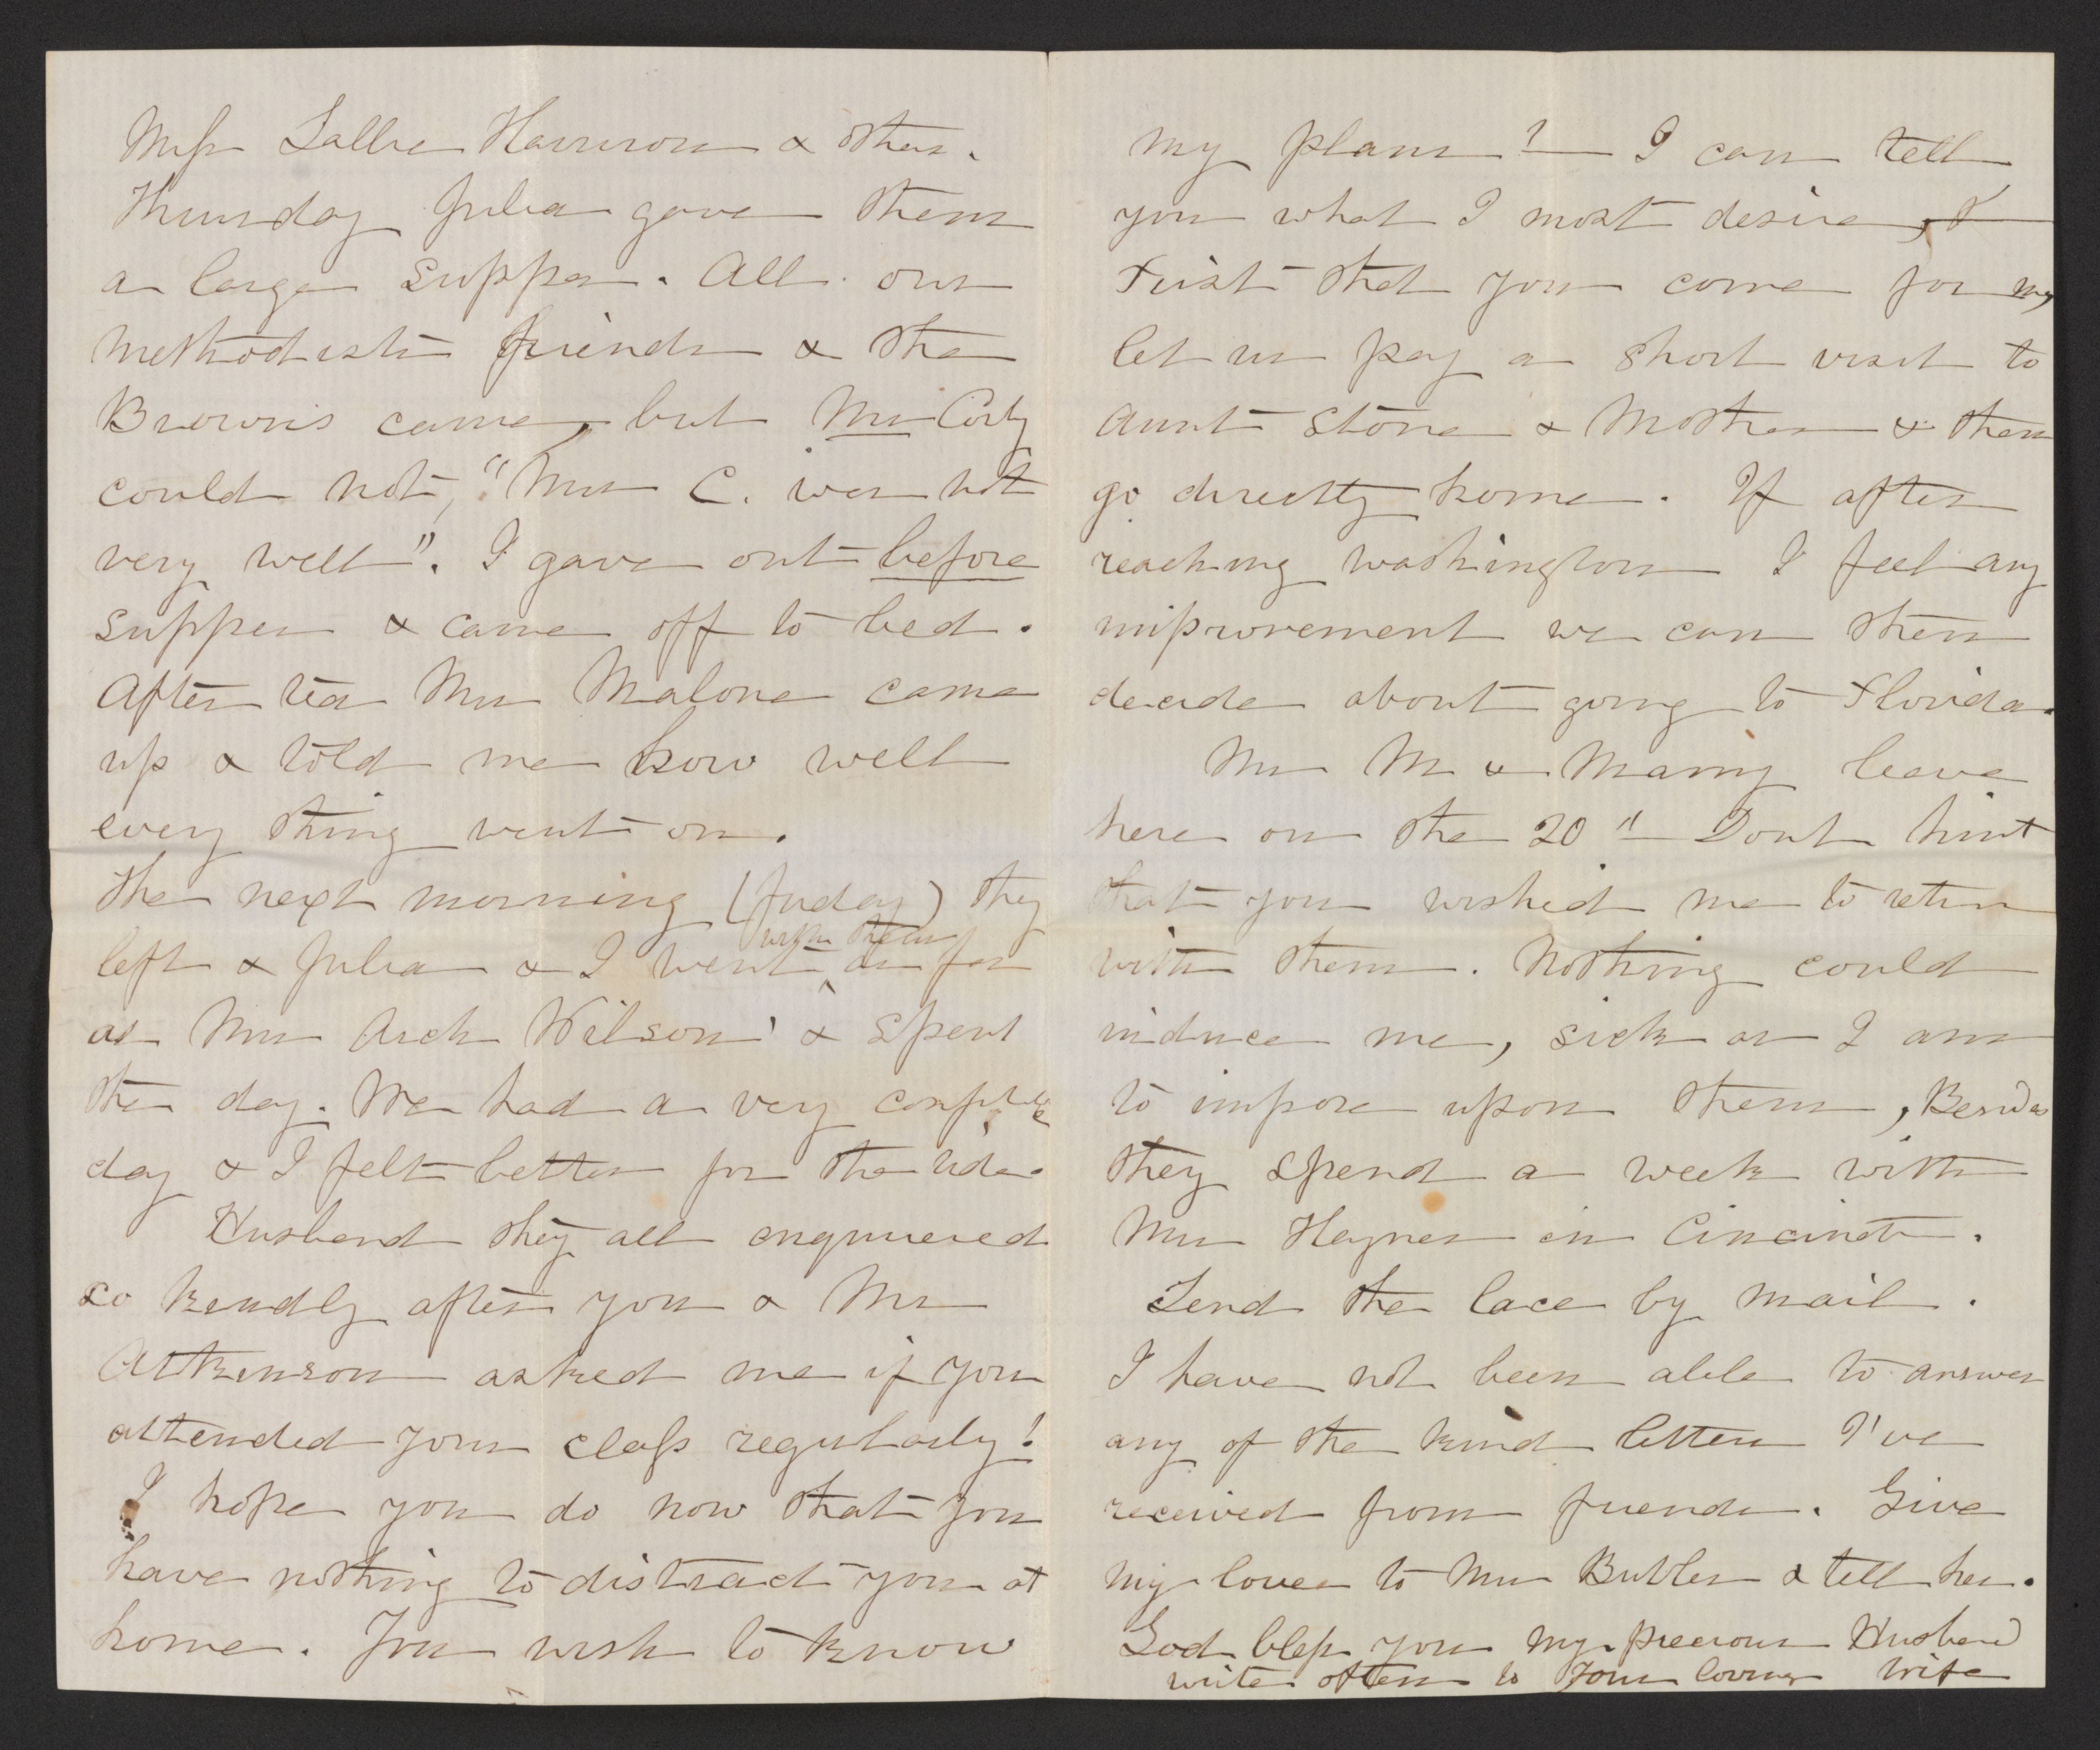 Miss Sallie Harrison & others.
Thursday Julia gave them
a large supper. All our
Methodist friends & the
Browns came, but Mr
could not, "Mrs C. was not
very well". I gave out before
supper & came off to bed.
After tea Mrs Malone came
up & told me how well
every thing went on.
The next morning (friday) they
left & Julia & I went with them as far
as Mrs Arch Wilsons' & spent
the day. We had a very
day & I felt better for the ride.
Husband they all enquiered
so kindly after you & Mr
Atkinson asked me if you
attended your class regularly!
I hope you do now that you
have nothing to distract you at
home. You wish to know
my plans? I can tell
you what I most desire,
First that you come for me,
let us pay a short visit to
Aunt Stone & Mother & then
go directly home. If after
reaching Washington I feel any
improvement we can then
decide about going to Florida.
Mrs M & Manny leave
here on the 20" Dont hint
that you wished me to return
with them. Nothing could
induce me, sick as I am
to impose upon them, Besides
they spend a week with
Mrs Haynes in Cincinati.
Send the lace by mail.
I have not been able to answer
any of the kind letters I've
received from friends. Give
my love to Mrs Butler & tell her.
God bless you my precious Husband
write often to Your loving Wife